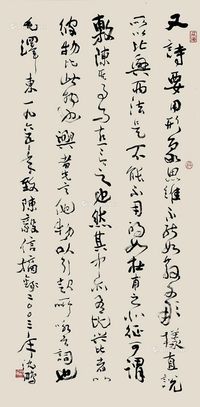 又詩要用形象思維不能如散文那樣直說
所以比興兩法是不能不用的如杜甫之北征可謂
敷陳其事而直言之也然其中亦有比興比者以
彼物比此物也興者先言他物以引起所詠之詞也
毛澤東一九六五年致陳毅信摘錄二〇〇三年沈鵬